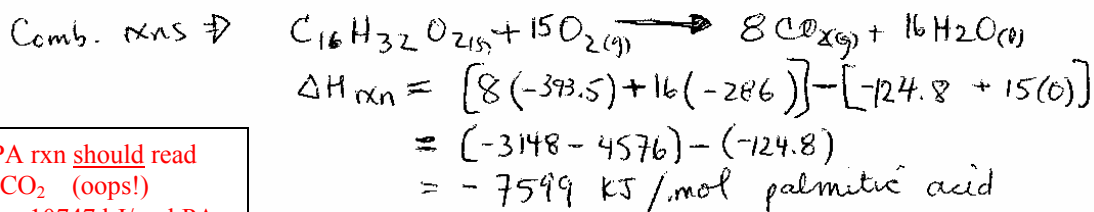 Comb. rxns ⇒ C₁₆H₃₂O₂₍ₛ₎ + 15O₂₍g₎ → 8CO₂₍g₎ + 16H₂O₍ℓ₎
ΔH rxn = [8(-393.5) + 16(-286)] - [-124.8 + 15(0)]
= (-3148 - 4576) - (-124.8)
= -7599 KJ/mol palmitic acid
PA rxn should read
CO₂ (oops!)
10747 kJ/mol PA